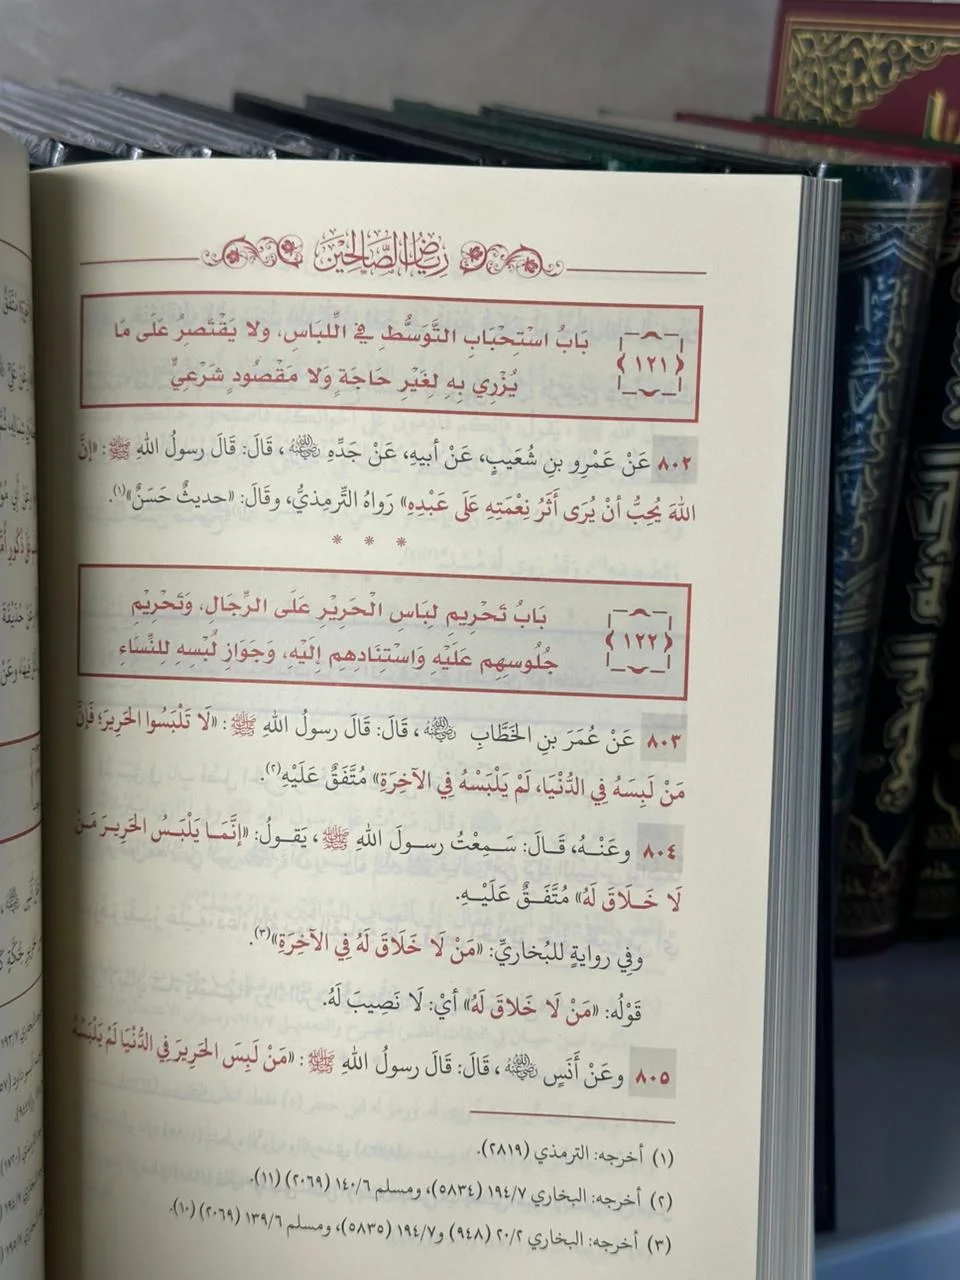 رياض الصالحين
﴿١٢١﴾ بَابُ اسْتِحْبَابِ التَّوَسُّطِ فِي اللِّبَاسِ، ولا يَقْتَصِرُ عَلَى مَا
يُزْرِي بِهِ لِغَيْرِ حَاجَةٍ وَلا مَقْصُودٍ شَرْعِيٍّ
٨٠٢ عَنْ عَمْرِو بنِ شُعَيبٍ، عَنْ أبيهِ، عَنْ جَدِّهِ رضي الله عنه، قَالَ: قَالَ رسولُ اللهِ ﷺ: «إنَّ
اللهَ يُحِبُّ أنْ يُرَى أَثَرُ نِعْمَتِهِ عَلَى عَبْدِهِ» رَوَاهُ التِّرمِذيُّ، وقَالَ: «حديثٌ حَسَنٌ»(١).
* * *
﴿١٢٢﴾ بَابُ تَحْرِيمِ لِبَاسِ الْحَرِيْرِ عَلَى الرِّجَالِ، وَتَحْرِيْمِ
جُلُوسِهِم عَلَيْهِ وَاسْتِنَادِهِم إلَيْهِ، وَجَوَازِ لُبْسِهِ لِلنِّسَاءِ
٨٠٣ عَنْ عُمَرَ بنِ الخَطَّابِ رضي الله عنه، قَالَ: قَالَ رسولُ اللهِ ﷺ: «لَا تَلْبَسُوا الحَرِيرَ؛ فَإنَّ
مَنْ لَبِسَهُ فِي الدُّنْيَا، لَمْ يَلْبَسْهُ فِي الآخِرَةِ» مُتَّفَقٌ عَلَيْهِ(٢).
٨٠٤ وعَنْـهُ، قَـالَ: سَـمِعْتُ رسولَ اللهِ ﷺ، يَقـولُ: «إنَّمَـا يَلْبَـسُ الحَرِيـرَ مَـنْ
لَا خَـلَاقَ لَهُ» مُتَّفَـقٌ عَلَيْـهِ.
وفِي روايةٍ للبُخاريِّ: «مَنْ لَا خَلَاقَ لَهُ فِي الآخِرَةِ»(٣).
قَوْلُه: «مَنْ لَا خَلاقَ لَهُ» أيْ: لَا نَصِيبَ لَهُ.
٨٠٥ وعَنْ أَنَسٍ رضي الله عنه، قَالَ: قَالَ رسولُ اللهِ ﷺ: «مَنْ لَبِسَ الحَرِيرَ فِي الدُّنْيَا لَمْ يَلْبَسْهُ
(١) أخرجه: الترمذي (٢٨١٩).
(٢) أخرجه: البخاري ١٩٤/٧ (٥٨٣٤)، ومسلم ١٤٠/٦ (٢٠٦٩) (١١).
(٣) أخرجه: البخاري ٢٠/٢ (٩٤٨) و١٩٤/٧ (٥٨٣٥)، ومسلم ١٣٩/٦ (٢٠٦٩) (١٠).
الكريم الرحمن